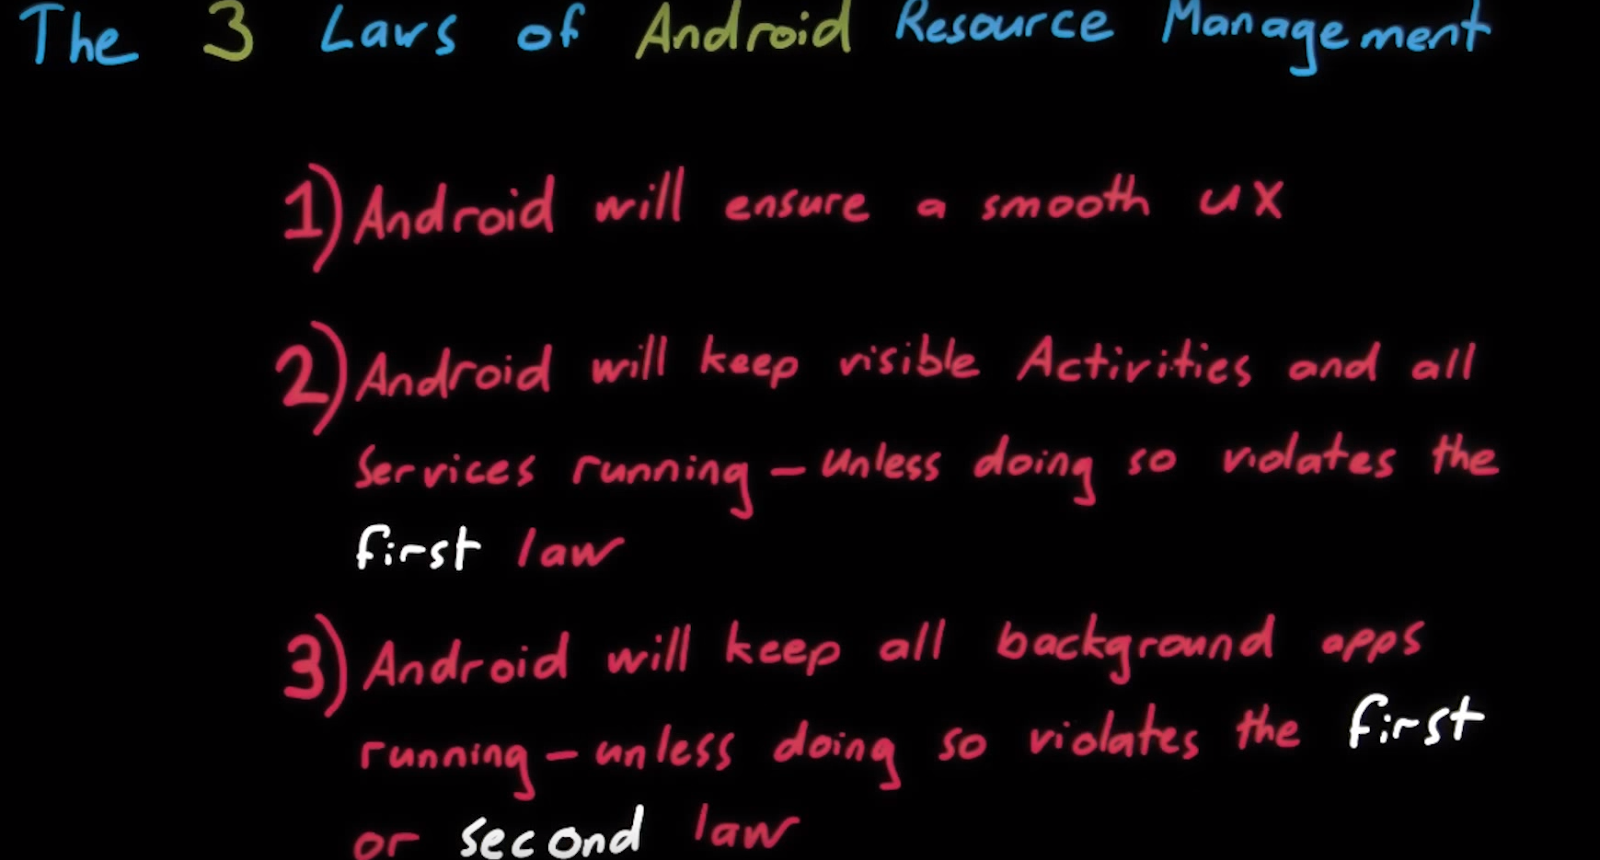 The 3 Laws of Android Resource Management
1) Android will ensure a smooth UX
2) Android will keep visible Activities and all
Services running – unless doing so violates the
first law
3) Android will keep all background apps
running – unless doing so violates the first
or second law